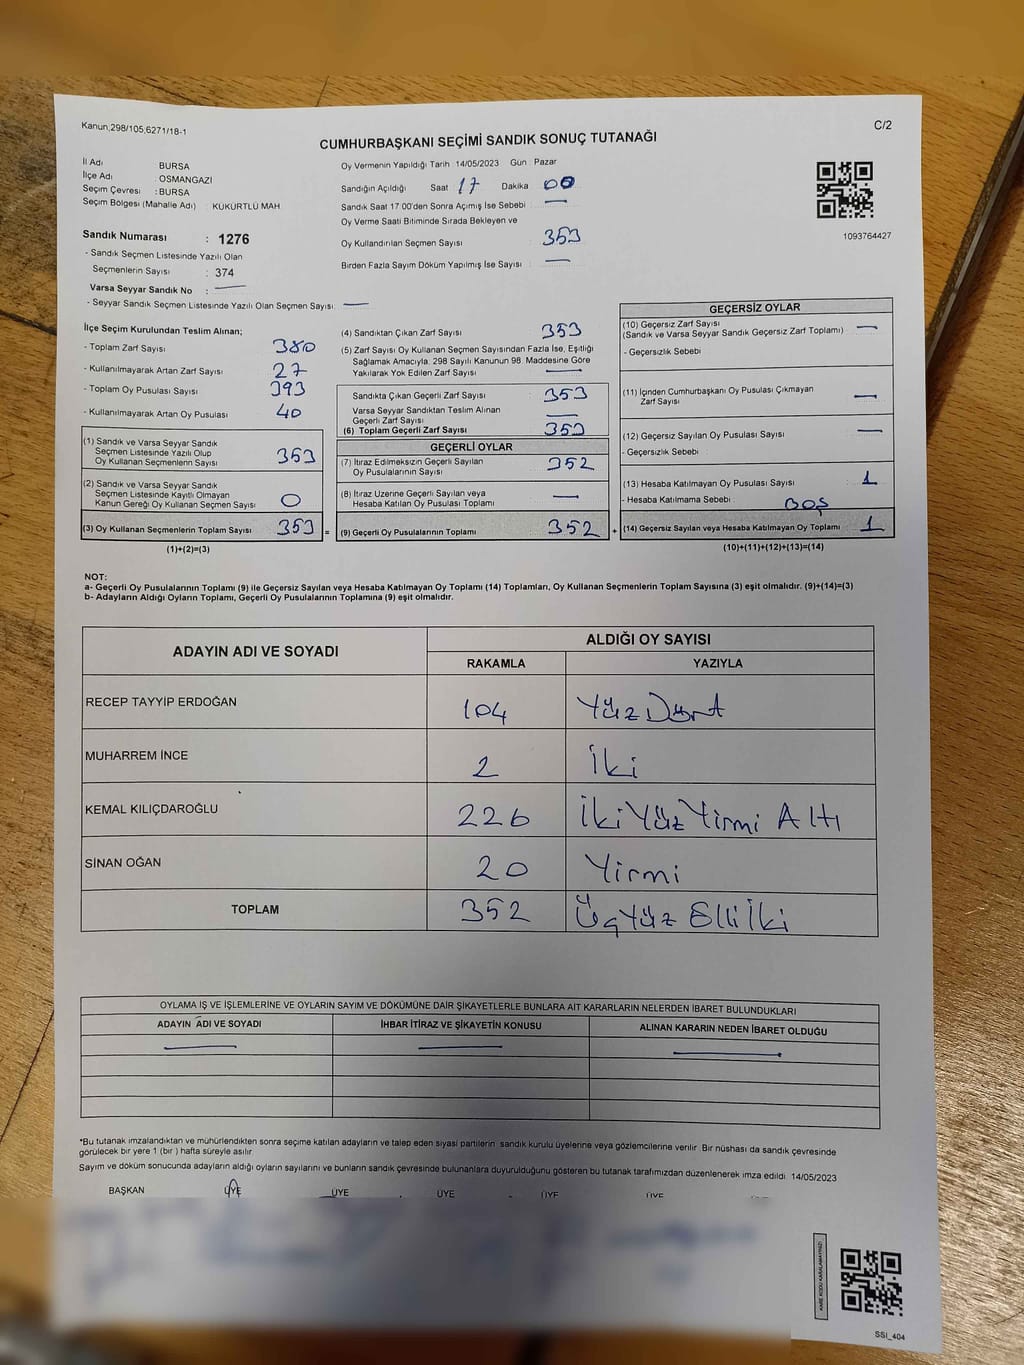 Kanun;298/105;6271/18-1
C/2
CUMHURBAŞKANI SEÇİMİ SANDIK SONUÇ TUTANAĞI
İl Adı BURSA
İlçe Adı : OSMANGAZI
Seçim Çevresi : BURSA
Seçim Bölgesi (Mahalle Adı) : KÜKÜRTLÜ MAH
Sandık Numarası : 1276
- Sandık Seçmen Listesinde Yazılı Olan
Seçmenlerin Sayısı : 374
Varsa Seyyar Sandık No : —
- Seyyar Sandık Seçmen Listesinde Yazılı Olan Seçmen Sayısı: —
Oy Vermenin Yapıldığı Tarih : 14/05/2023 Gün : Pazar
Sandığın Açıldığı Saat 17 Dakika 00
Sandık Saat 17:00'den Sonra Açılmış İse Sebebi : —
Oy Verme Saati Bitiminde Sırada Bekleyen ve
Oy Kullandırılan Seçmen Sayısı : 353
Birden Fazla Sayım Döküm Yapılmış İse Sayısı : —
1093764427
İlçe Seçim Kurulundan Teslim Alınan;
- Toplam Zarf Sayısı 380
- Kullanılmayarak Artan Zarf Sayısı : 27
- Toplam Oy Pusulası Sayısı : 393
- Kullanılmayarak Artan Oy Pusulası : 40
(1) Sandık ve Varsa Seyyar Sandık
Seçmen Listesinde Yazılı Olup
Oy Kullanan Seçmenlerin Sayısı : 353
(2) Sandık ve Varsa Seyyar Sandık
Seçmen Listesinde Kayıtlı Olmayan
Kanun Gereği Oy Kullanan Seçmen Sayısı : 0
(3) Oy Kullanan Seçmenlerin Toplam Sayısı : 353
(1)+(2)=(3)
(4) Sandıktan Çıkan Zarf Sayısı 353
(5) Zarf Sayısı Oy Kullanan Seçmen Sayısından Fazla İse, Eşitliği
Sağlamak Amacıyla, 298 Sayılı Kanunun 98. Maddesine Göre
Yakılarak Yok Edilen Zarf Sayısı : —
Sandıkta Çıkan Geçerli Zarf Sayısı : 353
Varsa Seyyar Sandıktan Teslim Alınan
Geçerli Zarf Sayısı : —
(6) Toplam Geçerli Zarf Sayısı 353
GEÇERLİ OYLAR
(7) İtiraz Edilmeksizin Geçerli Sayılan
Oy Pusulalarının Sayısı : 352
(8) İtiraz Üzerine Geçerli Sayılan veya
Hesaba Katılan Oy Pusulası Toplamı —
= (9) Geçerli Oy Pusulalarının Toplamı : 352 +
GEÇERSİZ OYLAR
(10) Geçersiz Zarf Sayısı
(Sandık ve Varsa Seyyar Sandık Geçersiz Zarf Toplamı) : —
- Geçersizlik Sebebi
(11) İçinden Cumhurbaşkanı Oy Pusulası Çıkmayan
Zarf Sayısı —
(12) Geçersiz Sayılan Oy Pusulası Sayısı : —
- Geçersizlik Sebebi :
(13) Hesaba Katılmayan Oy Pusulası Sayısı : 1
- Hesaba Katılmama Sebebi : BOŞ
(14) Geçersiz Sayılan veya Hesaba Katılmayan Oy Toplamı : 1
(10)+(11)+(12)+(13)=(14)
NOT:
a- Geçerli Oy Pusulalarının Toplamı (9) ile Geçersiz Sayılan veya Hesaba Katılmayan Oy Toplamı (14) Toplamları, Oy Kullanan Seçmenlerin Toplam Sayısına (3) eşit olmalıdır. (9)+(14)=(3)
b- Adayların Aldığı Oyların Toplamı, Geçerli Oy Pusulalarının Toplamına (9) eşit olmalıdır.
ADAYIN ADI VE SOYADI
ALDIĞI OY SAYISI
RAKAMLA YAZIYLA
RECEP TAYYİP ERDOĞAN 104 Yüz Dört
MUHARREM İNCE 2 İki
KEMAL KILIÇDAROĞLU 226 İki Yüz Yirmi Altı
SİNAN OĞAN 20 Yirmi
TOPLAM 352 Üç Yüz Elli İki
OYLAMA İŞ VE İŞLEMLERİNE VE OYLARIN SAYIM VE DÖKÜMÜNE DAİR ŞİKAYETLERLE BUNLARA AİT KARARLARIN NELERDEN İBARET BULUNDUKLARI
ADAYIN ADI VE SOYADI İHBAR İTİRAZ VE ŞİKAYETİN KONUSU ALINAN KARARIN NEDEN İBARET OLDUĞU
*Bu tutanak imzalandıktan ve mühürlendikten sonra seçime katılan adayların ve talep eden siyasi partilerin, sandık kurulu üyelerine veya gözlemcilerine verilir. Bir nüshası da sandık çevresinde
görülecek bir yere 1 (bir) hafta süreyle asılır.
Sayım ve döküm sonucunda adayların aldığı oyların sayılarını ve bunların sandık çevresinde bulunanlara duyurulduğunu gösteren bu tutanak tarafımızdan düzenlenerek imza edildi. 14/05/2023
BAŞKAN ÜYE ÜYE ÜYE ÜYE ÜYE
KARE KODU KARALAMAYINIZ!
SSİ_404